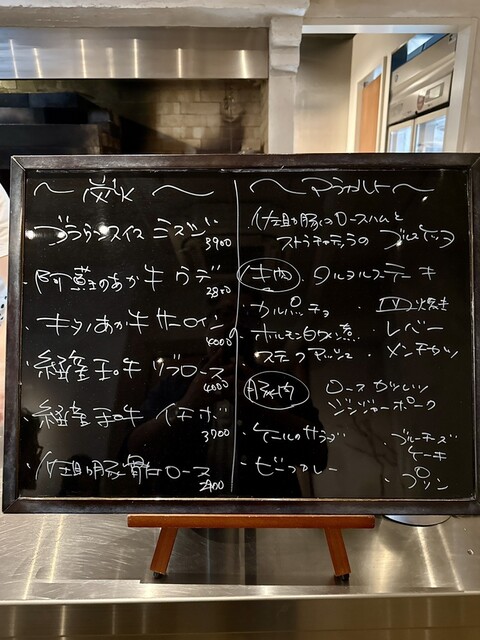 〜 炭火 〜
・ブラウンスイス ミスジ 3900
・阿蘇のあか牛 ウデ 3800
・キタノあか牛 サーロイン 4000
・経産王。牛 リブロース 4000
・経産王。牛 イチボ 3700
・仕且豚骨付ロース 2900
〜アラカルト〜
・仕且豚のロースハムと
ストラチャテッラの ブルスケッタ
牛肉 ・タルタルステーキ
・カルパチョ
・ホルモン白ワイン煮 ・レバー
・ステックアッシェ ・メンチカツ
豚肉 ロースカツレツ
ジンジャーポーク
・ケールのサラダ ・ブルーチーズ
ケーキ
・ビーフカレー ・プリン